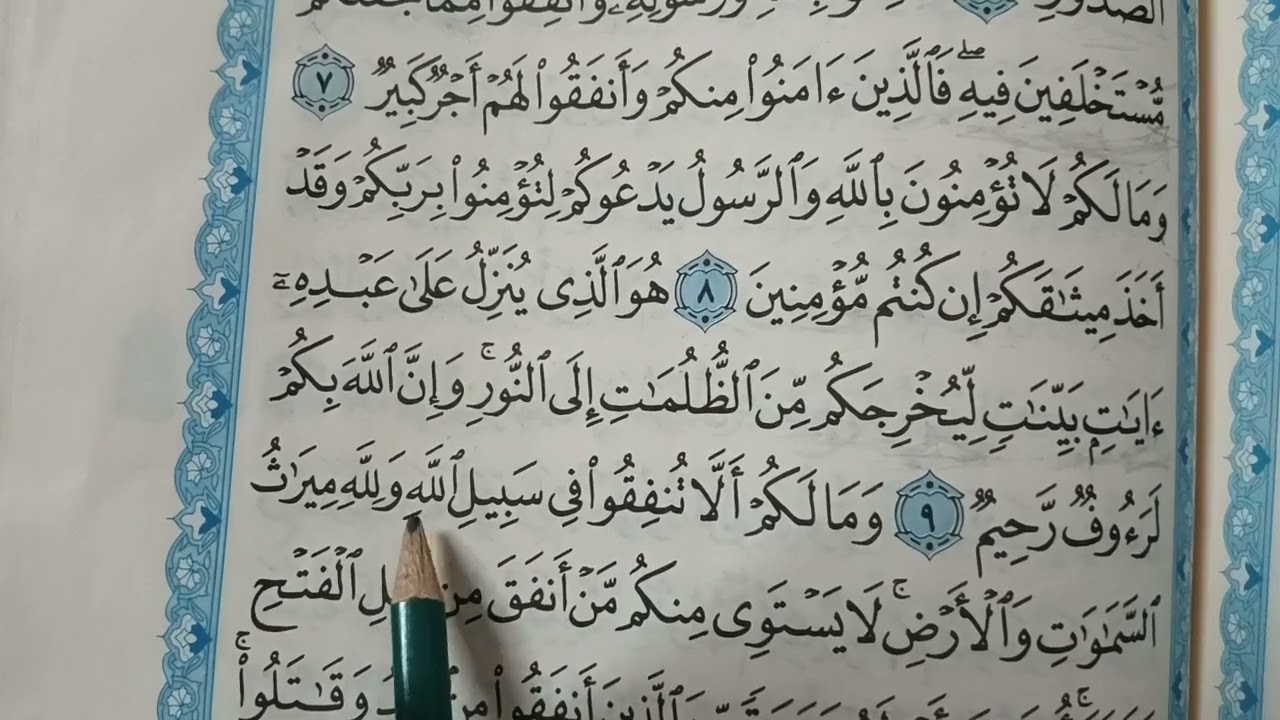 الصُّدُورِ
مُّسۡتَخۡلَفِينَ فِيهِۖ فَٱلَّذِينَ ءَامَنُواْ مِنكُمۡ وَأَنفَقُواْ لَهُمۡ أَجۡرٞ كَبِيرٞ ٧
وَمَا لَكُمۡ لَا تُؤۡمِنُونَ بِٱللَّهِ وَٱلرَّسُولُ يَدۡعُوكُمۡ لِتُؤۡمِنُواْ بِرَبِّكُمۡ وَقَدۡ
أَخَذَ مِيثَٰقَكُمۡ إِن كُنتُم مُّؤۡمِنِينَ ٨ هُوَ ٱلَّذِي يُنَزِّلُ عَلَىٰ عَبۡدِهِۦٓ
ءَايَٰتِۭ بَيِّنَٰتٖ لِّيُخۡرِجَكُم مِّنَ ٱلظُّلُمَٰتِ إِلَى ٱلنُّورِۚ وَإِنَّ ٱللَّهَ بِكُمۡ
لَرَءُوفٞ رَّحِيمٞ ٩ وَمَا لَكُمۡ أَلَّا تُنفِقُواْ فِي سَبِيلِ ٱللَّهِ وَلِلَّهِ مِيرَٰثُ
ٱلسَّمَٰوَٰتِ وَٱلۡأَرۡضِۚ لَا يَسۡتَوِي مِنكُم مَّنۡ أَنفَقَ مِن ٱلۡفَتۡحِ
ٱلَّذِينَ أَنفَقُواْ وَقَٰتَلُواْۚ